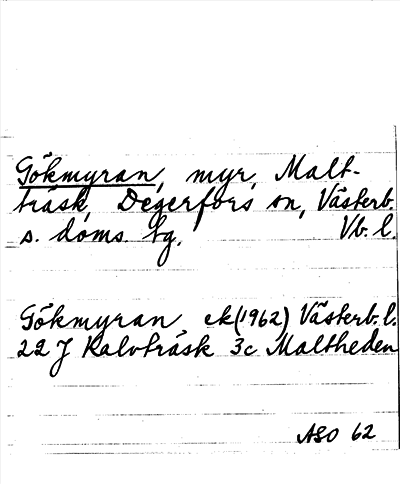 Gökmyran, myr, Malt-
träsk, Degerfors sn, Västerb.
s. doms. tg, Vb. l.
Gökmyran ek (1962) Västerb. l.
22 J Kalvträsk 3c Maltheden
ASO 62